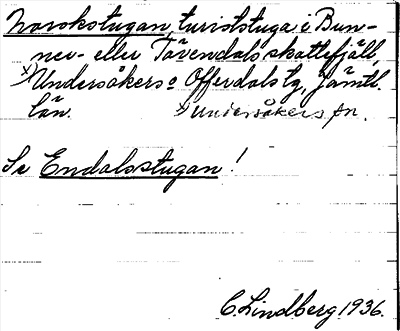 Norskstugan, turiststuga i Bun-
ner- eller Tävendals skattefjäll,
x) Undersåkers o Offerdals tg, Jämtl.
län. x) Undersåkers sn.
Se Endalsstugan!
C. Lindberg 1936.